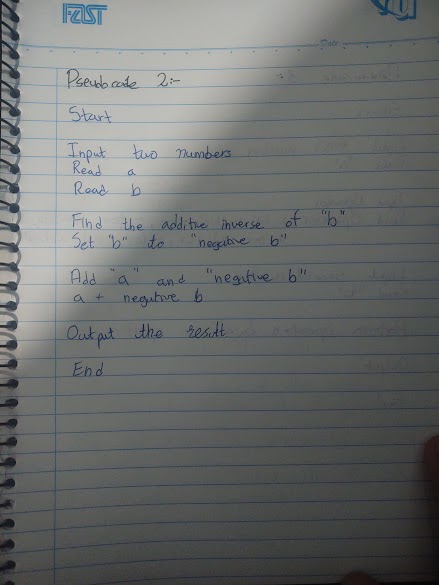 FAST
Date:
Pseudocode 2:-
Start
Input two numbers
Read a
Read b
Find the additive inverse of "b"
Set "b" to "negative b"
Add "a" and "negitive b"
a + negitive b
Output the result
End